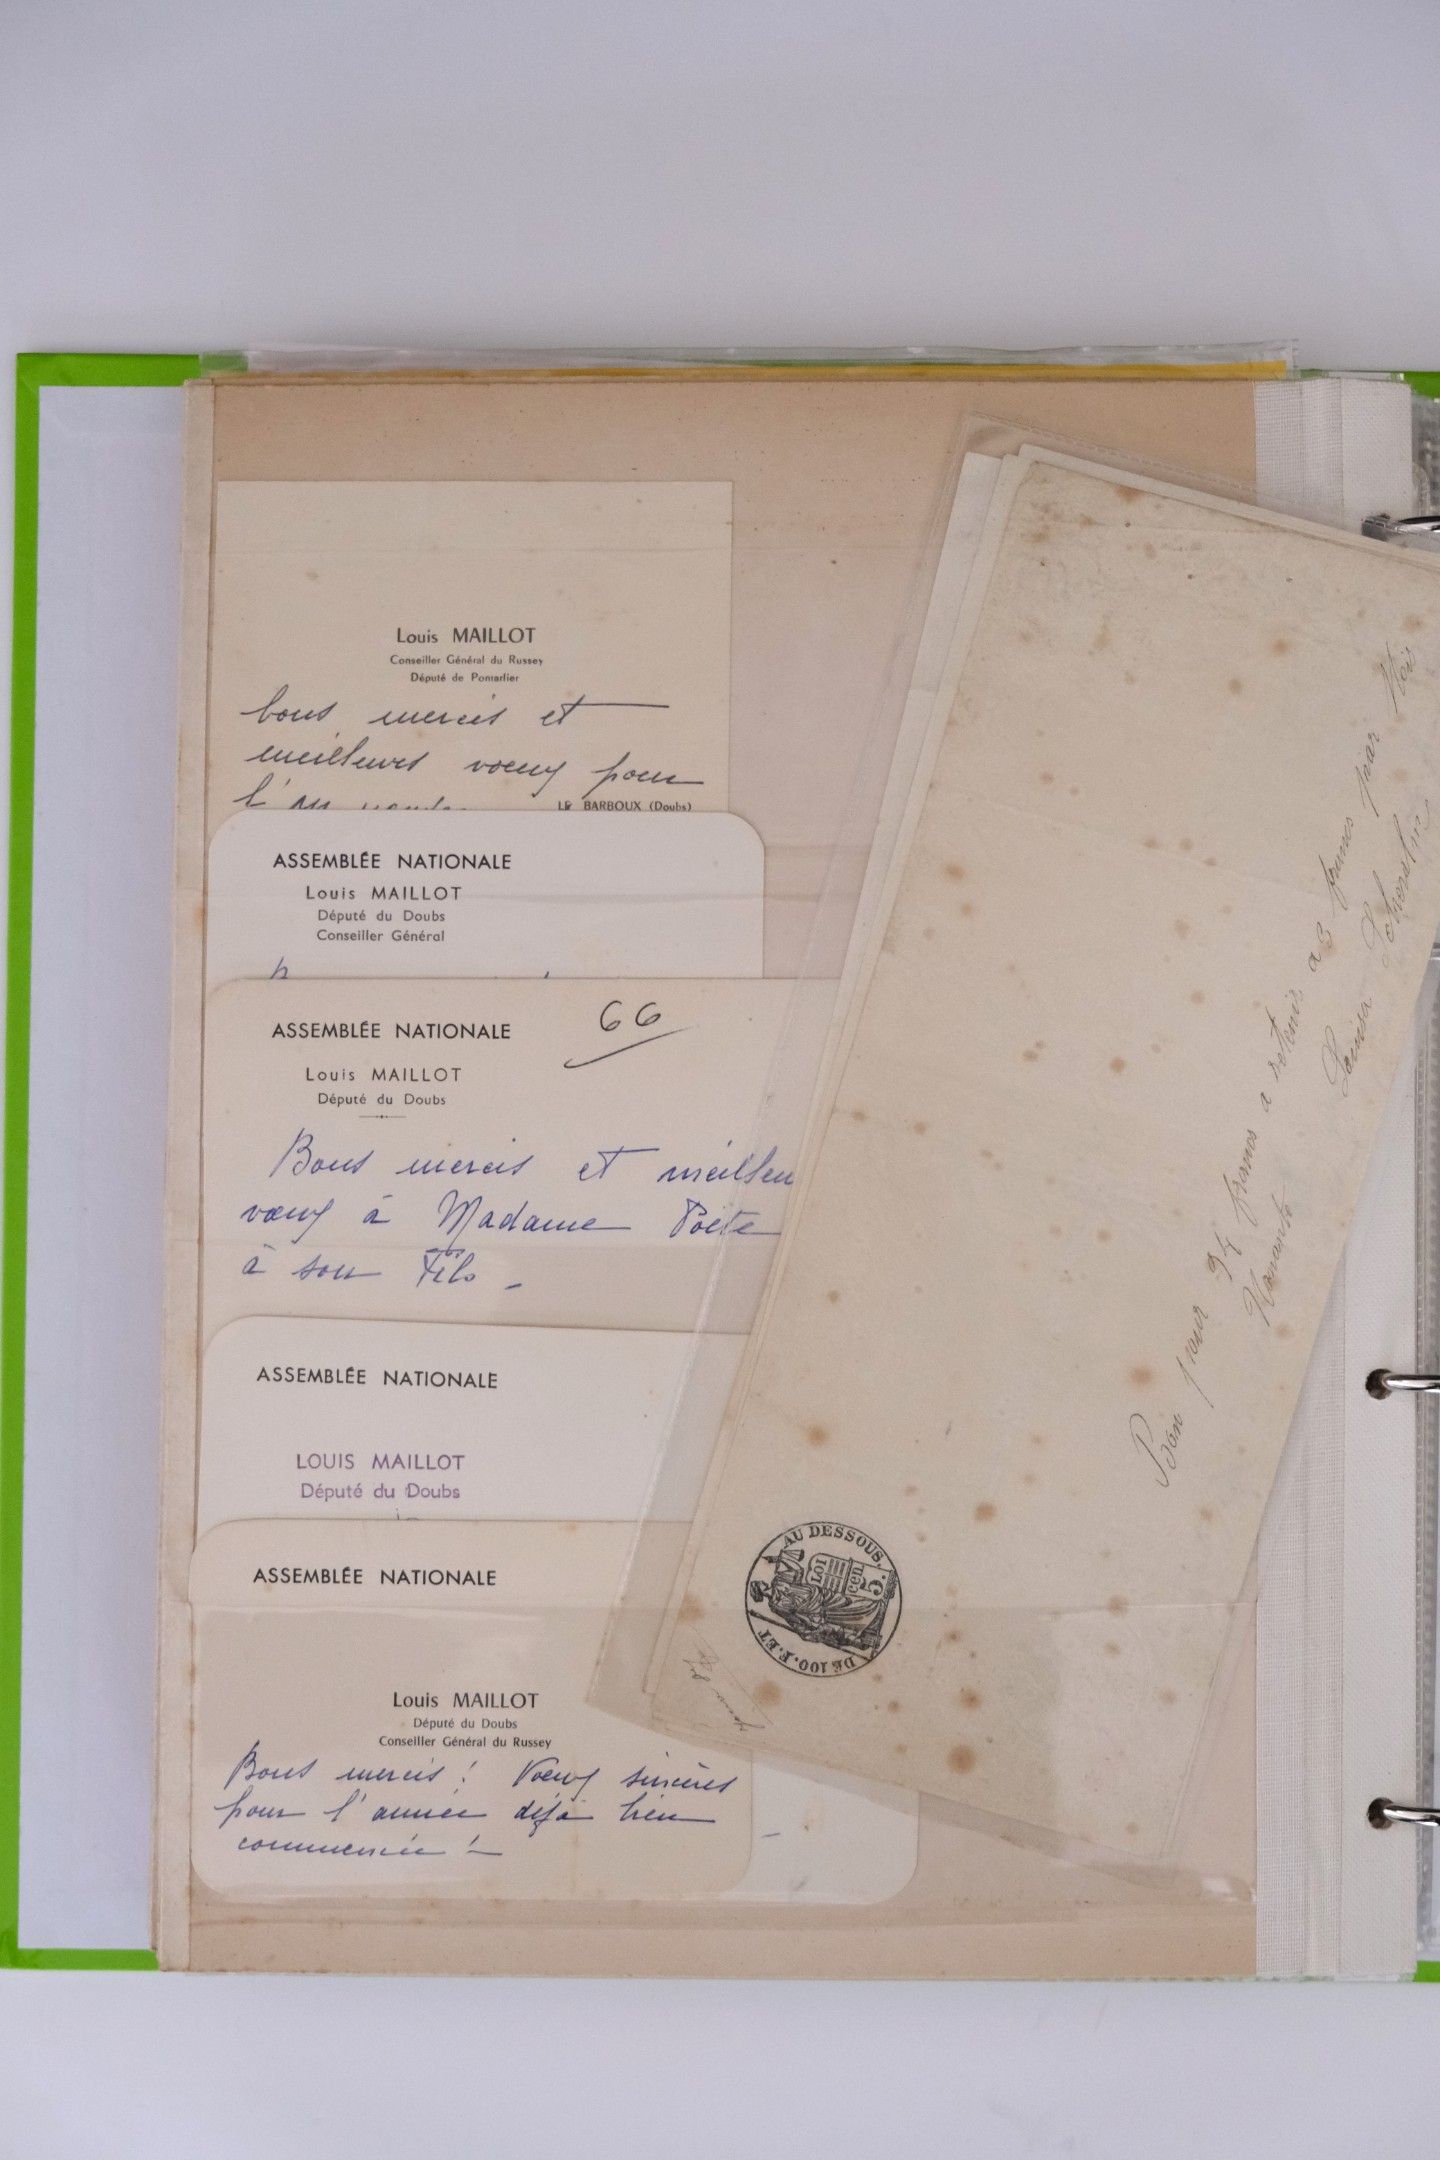 Louis MAILLOT
Conseiller Général du Russey
Député de Pontarlier
bons mercis et
meilleurs voeux pour
l'an
LE BARBOUX (Doubs)
ASSEMBLÉE NATIONALE
Louis MAILLOT
Député du Doubs
Conseiller Général
ASSEMBLÉE NATIONALE
66
Louis MAILLOT
Député du Doubs
Bons mercis et meilleu
voeux à Madame
à son Fils -
ASSEMBLÉE NATIONALE
LOUIS MAILLOT
Député du Doubs
ASSEMBLÉE NATIONALE
Louis MAILLOT
Député du Doubs
Conseiller Général du Russey
Bons mercis ! Voeux sincères
pour l'année déjà bien
commencée ! -
Bon pour 94 francs a retenir a 3 francs par Mois
Louisa
AU DESSOUS.
LOI
5. cen
DE 100. F. ET